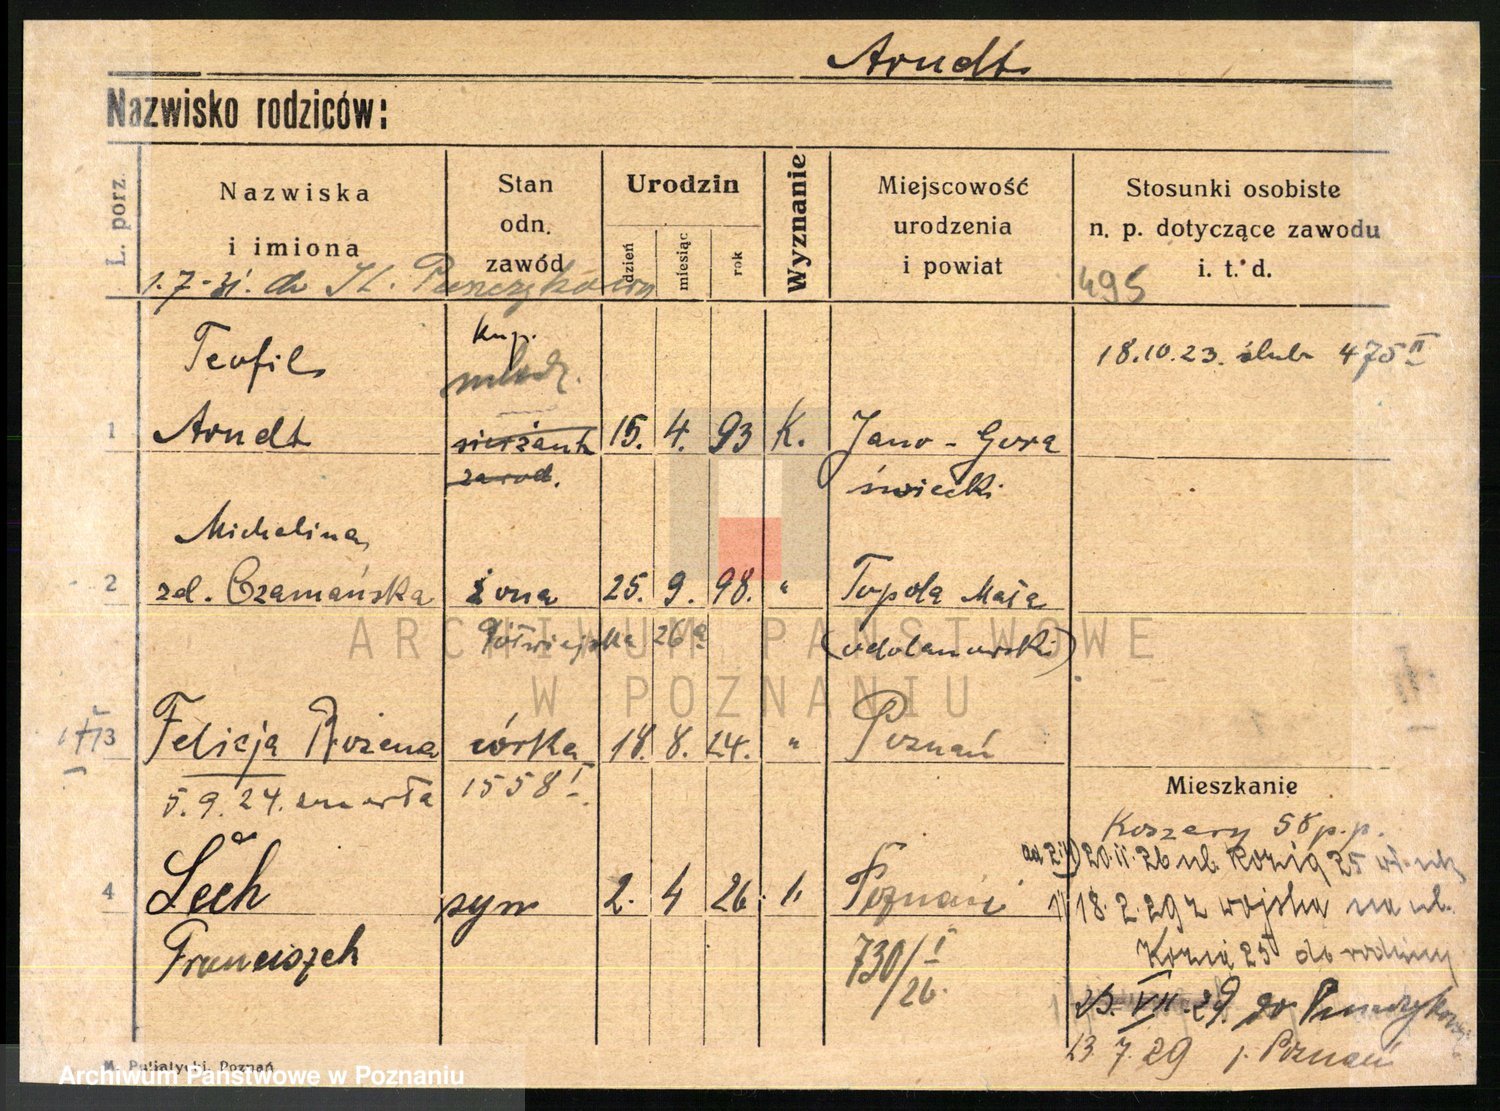 Arndt
Nazwisko rodziców:
L. porz.
Nazwiska
i imiona
Stan
odn.
zawód
Urodzin
dzień
miesiąc
rok
Wyznanie
Miejscowość
urodzenia
i powiat
Stosunki osobiste
n. p. dotyczące zawodu
i. t. d.
1.7-31. do St. Puszczykowa
495
Teofil
kup.
18.10.23. ślub 475 II
1 Arndt sierżant 15. 4. 93 K. Jano-Gora
zawod. świecki
Michelina
2 zd. Czamańska żona 25. 9. 98. " Topola Mała
26a (odolanowski)
3 Felicja Bożena córka 18. 8. 24. " Poznań
5.9.24. zmarła 1558 I
Mieszkanie
Koszary 58 p.p.
20.11.26 ul. Kozia 25
4 Lech syn 2. 4 26. " Poznań
18.2.29 z wojska na ul.
Franciszek 730/I/26.
Kozia 25 do rodziny
25.VII.29. do Puszczykowa
13 7.29 j. Poznań
ARCHIWUM PAŃSTWOWE
W POZNANIU
Poznań
Archiwum Państwowe w Poznaniu